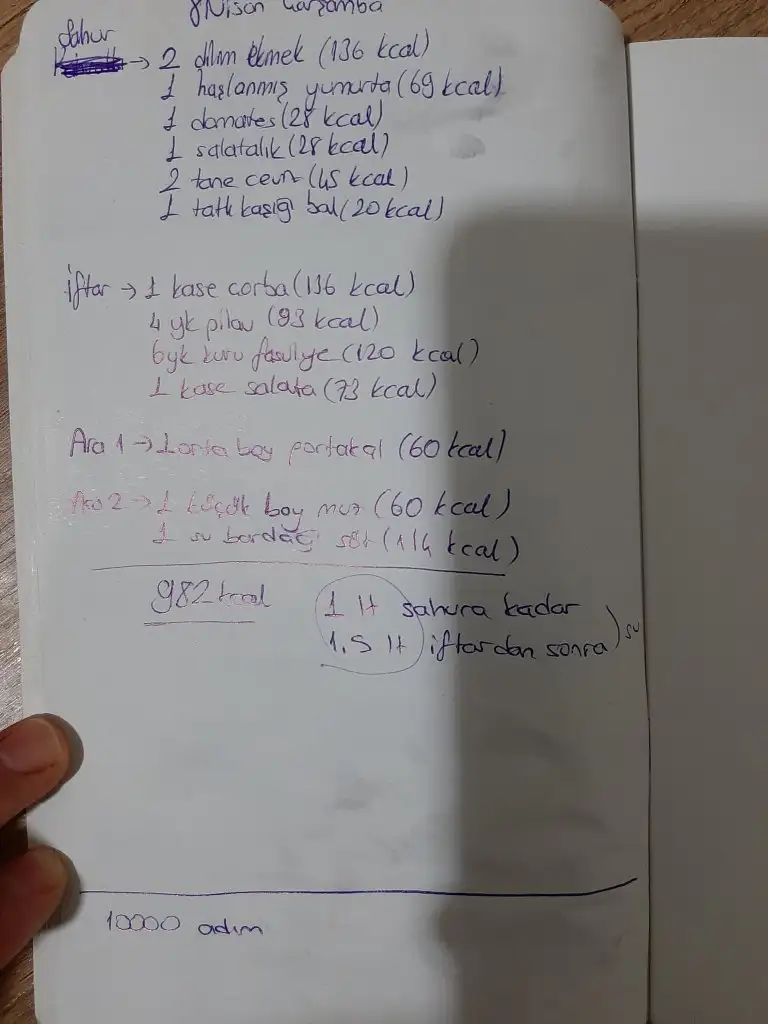 8 Nisan Çarşamba
Sahur
→ 2 dilim ekmek (136 kcal)
1 haşlanmış yumurta (69 kcal)
1 domates (28 kcal)
1 salatalık (28 kcal)
2 tane ceviz (45 kcal)
1 tatlı kaşığı bal (20 kcal)
iftar → 1 kase çorba (136 kcal)
4 yk pilav (93 kcal)
6 yk kuru fasulye (120 kcal)
1 kase salata (73 kcal)
Ara 1 → 1 orta boy portakal (60 kcal)
Ara 2 → 1 küçük boy muz (60 kcal)
1 su bardağı süt (114 kcal)
982 kcal
1 lt sahura kadar
1.5 lt iftardan sonra ) su
10000 adım